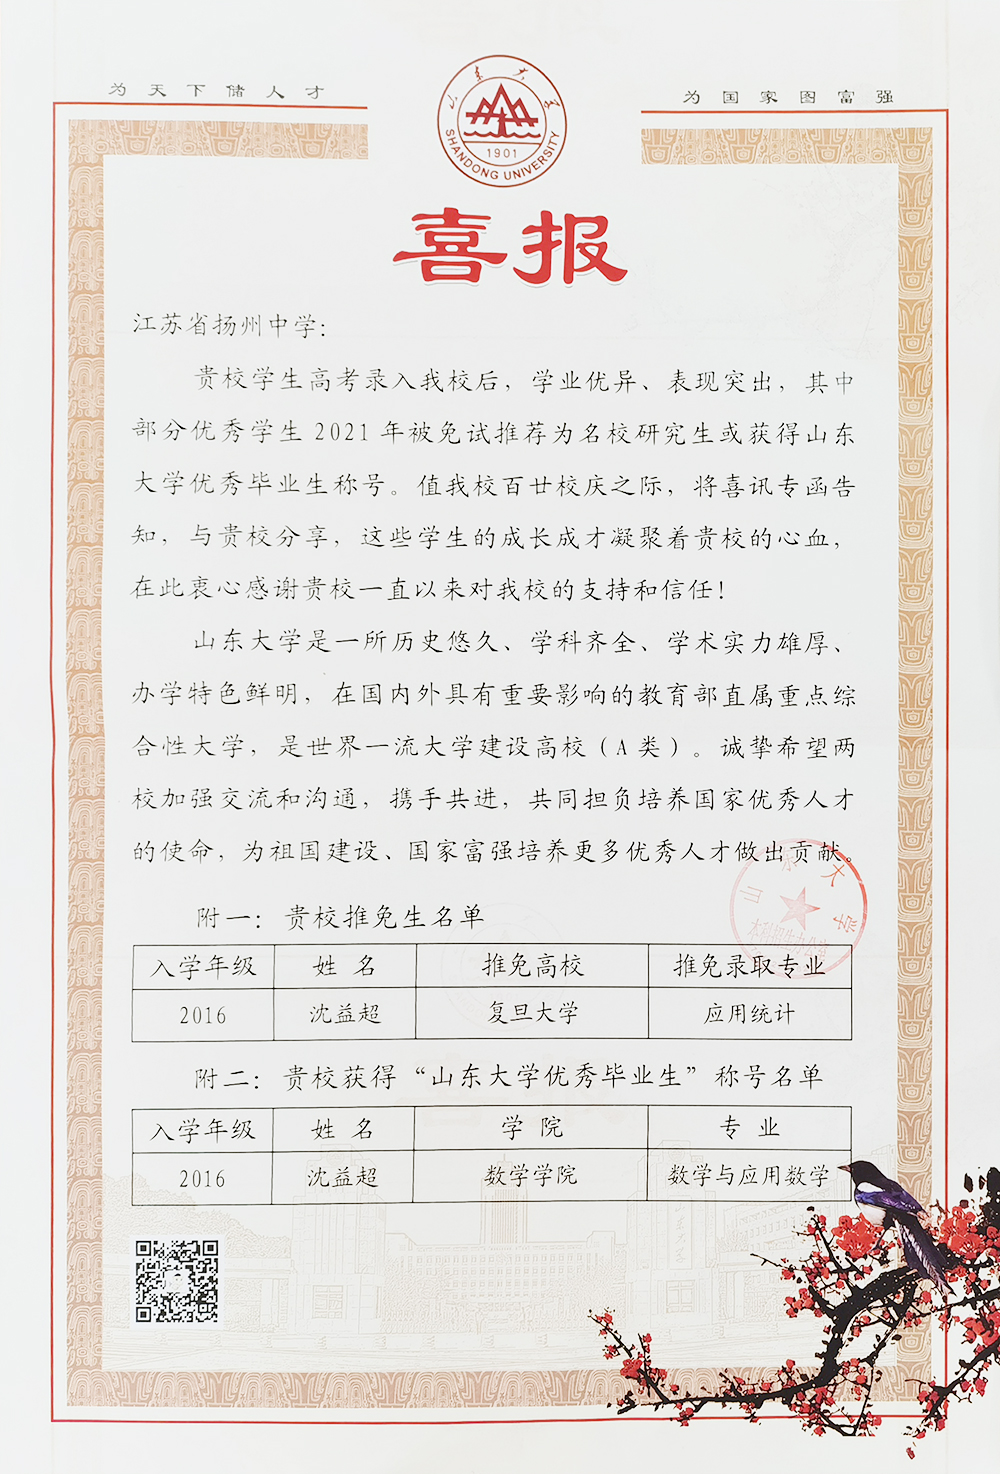 为天下储人才
为国家图富强
山东大学
1901
SHANDONG UNIVERSITY
喜报
江苏省扬州中学：
贵校学生高考录入我校后，学业优异、表现突出，其中
部分优秀学生2021年被免试推荐为名校研究生或获得山东
大学优秀毕业生称号。值我校百廿校庆之际，将喜讯专函告
知，与贵校分享，这些学生的成长成才凝聚着贵校的心血，
在此衷心感谢贵校一直以来对我校的支持和信任！
山东大学是一所历史悠久、学科齐全、学术实力雄厚、
办学特色鲜明，在国内外具有重要影响的教育部直属重点综
合性大学，是世界一流大学建设高校（A类）。诚挚希望两
校加强交流和沟通，携手共进，共同担负培养国家优秀人才
的使命，为祖国建设、国家富强培养更多优秀人才做出贡献。
山东大学
本科招生办公室
附一：贵校推免生名单
入学年级 姓名 推免高校 推免录取专业
2016 沈益超 复旦大学 应用统计
附二：贵校获得“山东大学优秀毕业生”称号名单
入学年级 姓名 学院 专业
2016 沈益超 数学学院 数学与应用数学